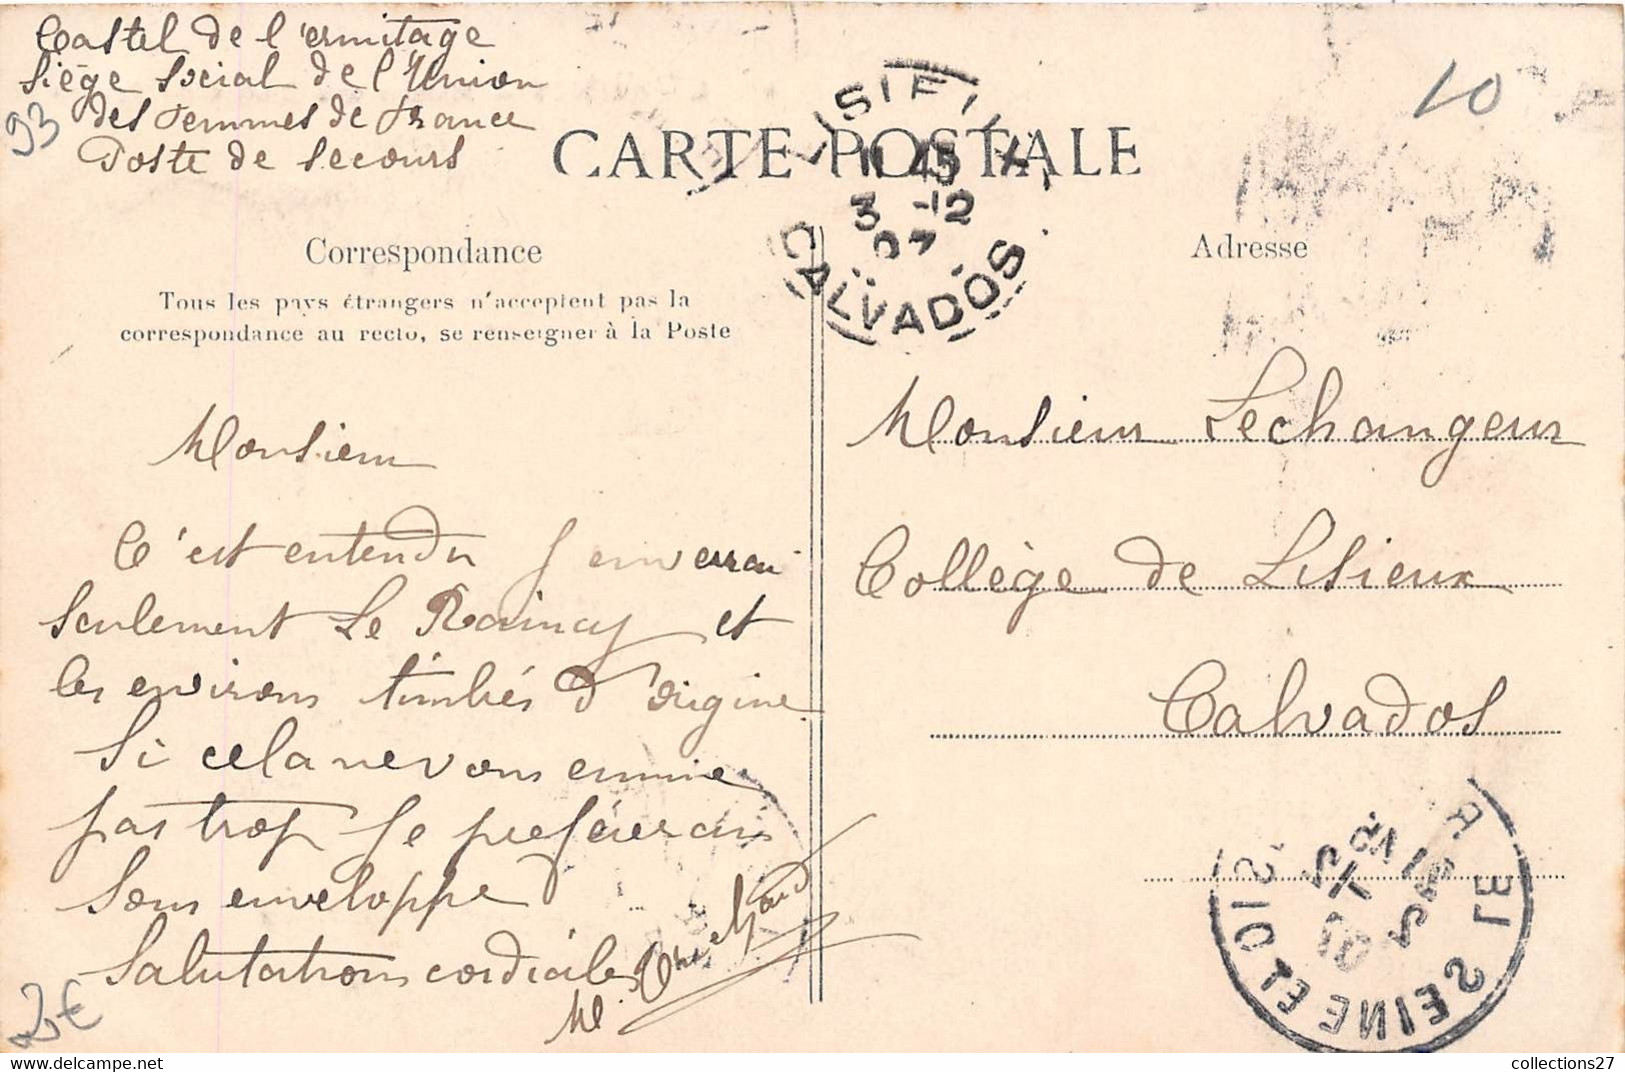 Castel de l'ermitage
Siège Social de l'Union
des Femmes de France
Poste de secours
93
10
CARTE POSTALE
LISIEUX
11 45
3 -12
07
CALVADOS
Correspondance
Tous les pays étrangers n'acceptent pas la
correspondance au recto, se renseigner à la Poste
Adresse
Monsieur
C'est entendu J enverrai
seulement Le Raincy et
les environs timbrés d'origine
Si cela ne vous ennuie
pas trop je préférerais
sous enveloppe
Salutations cordiales
Monsieur Lechangeur
Collège de Lisieux
Calvados
LE R
SEINE ET OISE
2€
collections27